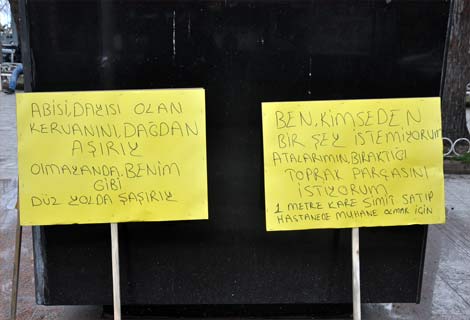 ABİSİ, DAYISI OLAN
KERVANINI, DAĞDAN
AŞIRIY
OLMAYANDA, BENİM
GİBİ
DÜZ YOLDA ŞAŞIRIY
BEN, KİMSEDEN
BİR ŞEY İSTEMİYORUM
ATALARIMIN, BIRAKTIĞI
TOPRAK PARÇASINI
İSTİYORUM
1 METRE KARE SİMİT SATIP
HASTANEDE MUHANE OLMAK İÇİN